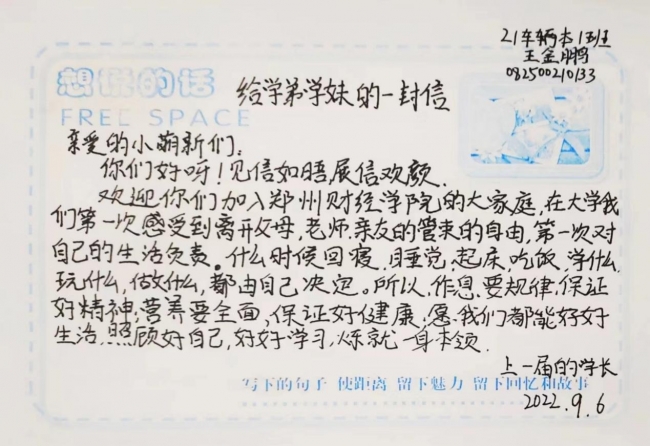 21车辆本1班
王金鹏
082500210133
想说的话
FREE SPACE
给学弟学妹的一封信
亲爱的小萌新们:
你们好呀!见信如晤,展信欢颜.
欢迎你们加入郑州财经学院的大家庭,在大学我
们第一次感受到离开父母,老师,亲友的管束的自由,第一次对
自己的生活负责。什么时候回寝,睡觉,起床,吃饭,学什么,
玩什么,做什么,都由自己决定。所以,作息要规律,保证
好精神;营养要全面,保证好健康;愿我们都能好好
生活,照顾好自己,好好学习,炼就一身本领.
上一届的学长
写下的句子 使距离 留下魅力 留下回忆和故事
2022.9.6